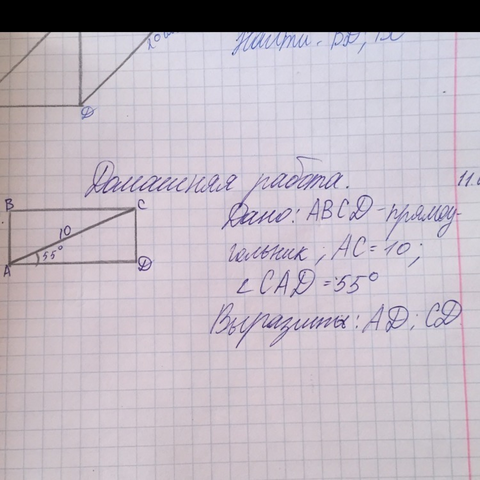 D
Найти: BD,
Домашняя работа.
11.
B
C
10
A
55°
D
Дано: ABCD - прямоу-
гольник ; AC = 10 ;
∠CAD = 55°
Выразить: AD ; CD